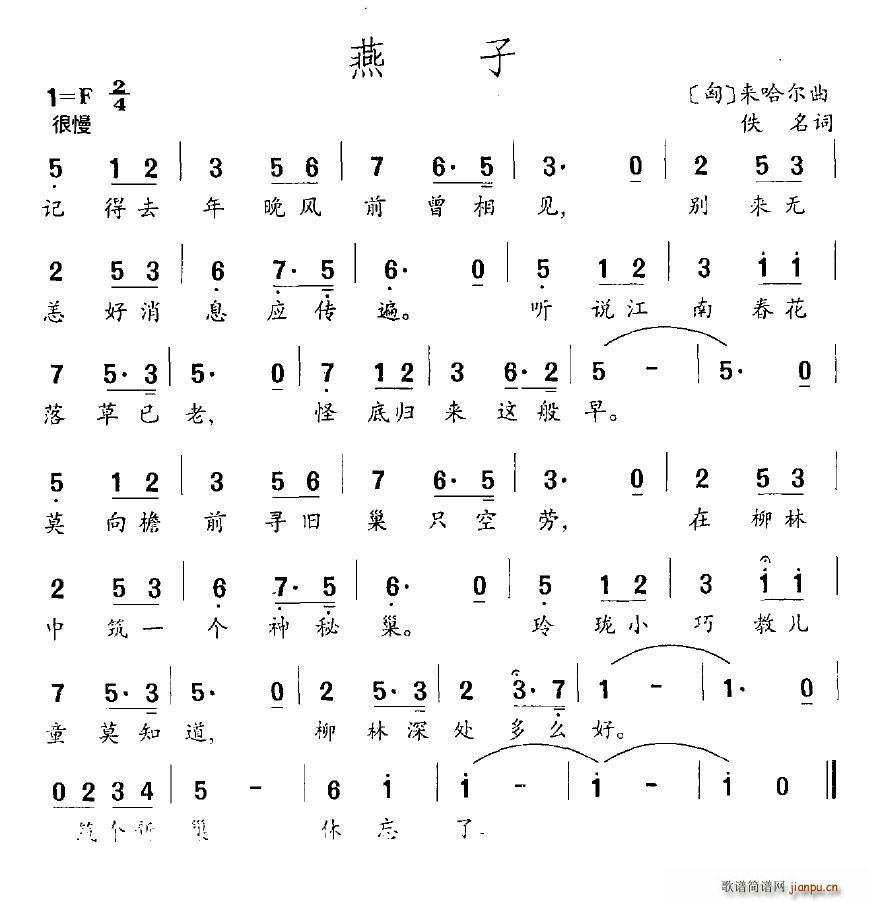 燕 子
1=F 2/4
〔匈〕来哈尔曲
很慢
佚 名词
5 1 2 | 3 5 6 | 7 6· 5 | 3· 0 | 2 5 3
记 得去 年 晚风 前 曾相 见, 别 来无
2 5 3 | 6 7· 5 | 6· 0 | 5 1 2 | 3 i i
恙 好消 息 应传 遍。 听 说江 南 春花
7 5· 3 | 5· 0 | 7 1 2 | 3 6· 2 | 5 - | 5· 0
落 草已 老, 怪 底归 来 这般 早。
5 1 2 | 3 5 6 | 7 6· 5 | 3· 0 | 2 5 3
莫 向檐 前 寻旧 巢 只空 劳, 在 柳林
2 5 3 | 6 7· 5 | 6· 0 | 5 1 2 | 3 i i
中 筑一 个 神秘 巢。 玲 珑小 巧 教儿
7 5· 3 | 5· 0 | 2 5· 3 | 2 3· 7 | 1 - | 1· 0
童 莫知 道, 柳 林深 处 多么 好。
0 2 3 4 | 5 - | 6 i | i - | i - | i 0 ‖
筑个新 巢 休 忘 了
歌谱简谱网 jianpu.cn